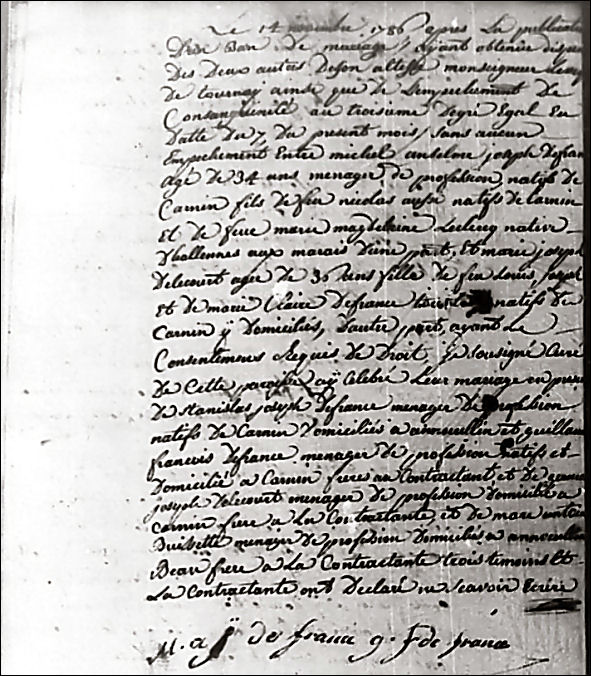 Le 14 novembre 1786 apres La publication
D'un Ban de mariage, ayant obtenue dispen
Des Deux autres De son altesse monseigneur Leveq
De tournay ainsi que de L'empechement De
Consanguinité au troisieme Degré Egal En
Datte Du 7 Du present mois, Sans aucun
Empechement Entre michel anselme joseph Defran
agé de 34 ans menager de profession natif De
Carnin fils de feu nicolas aussi natif de Carnin
et de feue marie magdeleine Leclercq native
D'hallennes aux marais D'une part, Et marie joseph
Delecourt agée de 36 ans fille de feu Louis joseph
Et de marie Claire Defrance natifs De
Carnin ÿ Domiciliés, D'autre part, ayant Le
Consentemens Requis de Droit, Je sousigné Curé
De Cette paroisse aÿ Celebré Leur mariage en prese
de Stanislas joseph Defrance menager De profession
natif de Carnin Domicilié a annoeullin et guillau
francois Defrance menager de profession natif et
Domicilié a Carnin freres au Contractant, et de
joseph Delecourt menager De profession Domicilié a
Carnin frere a La Contractante, et De marc antoi
menager de profession Domicilié a annoeullin
Beau frere a La Contractante trois temoins Et
La Contractante ont Declaré ne Scavoir Ecrire
M. a. j de france g. f de france